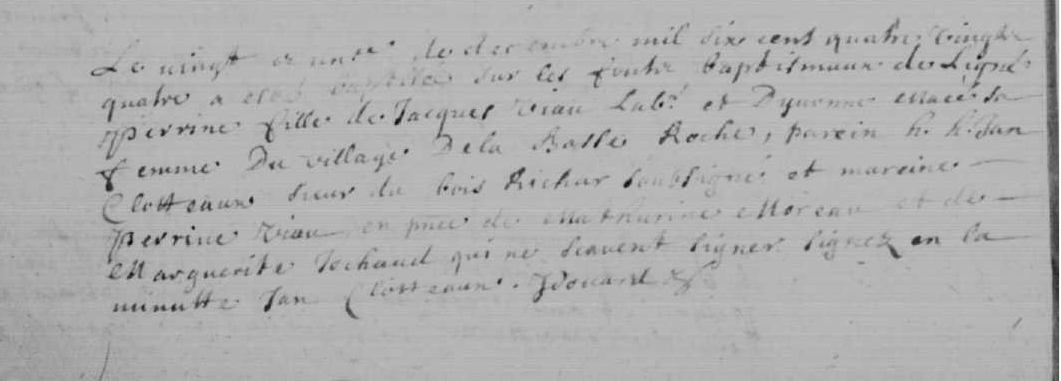 Le vingt et un.e de decembre mil six cent quatre vingts
quatre a esté baptisée sur les fonts baptismaux de Ligné
Perrine fille de Jacques Viau Lab.r et Dyvonne Macé sa
femme Du village Dela Basse Roche, parein h. h. Jan
Clotteaux sieur du bois Richar soubsigné et mareine
Perrine Viau en pnce de Mathurine Moreau et de
Marguerite Jochaud qui ne scavent signer signez en la
minutte Jan Clotteaux.